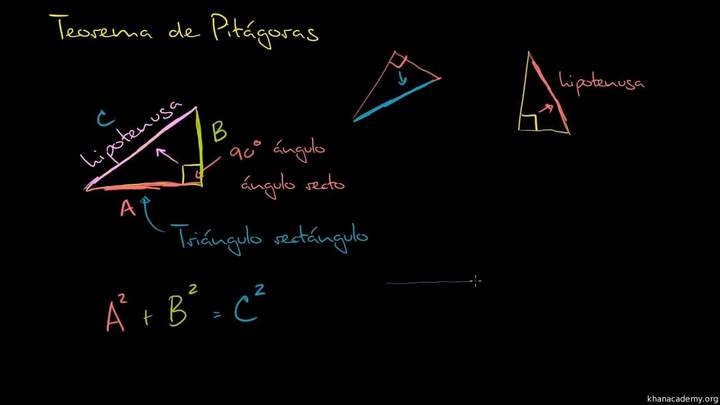 Teorema de Pitágoras
C
hipotenusa
B
90° ángulo
ángulo recto
A
Triángulo rectángulo
hipotenusa
A² + B² = C²
khanacademy.org